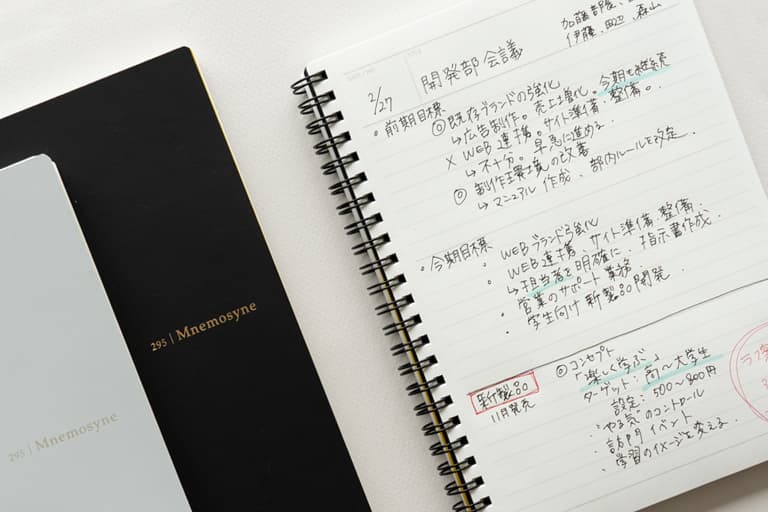 295 | Mnemosyne
295 | Mnemosyne
加藤部長、
伊藤、田辺、森山
2/27
開発部会議
・前期目標
◎ 既存ブランドの強化
↳ 広告制作。売上増化。今期も継続
× WEB連携。サイト準備・整備。
↳ 不十分。早急に進める
◎ 制作環境の改善
↳ マニュアル作成、部内ルールを改定
・今期目標
・WEBブランド強化
・WEB連携、サイト準備・整備
↳ 担当者を明確に、指示書作成.
・営業のサポート業務
・学生向け新製品開発.
新製品
11月発売
◎ コンセプト
「楽しく学ぶ」
ターゲット：高〜大学生
設定：500〜800円
・"やる気"のコントロール
・訪門イベント
・学習のイメージを変える.
ラフ案
3